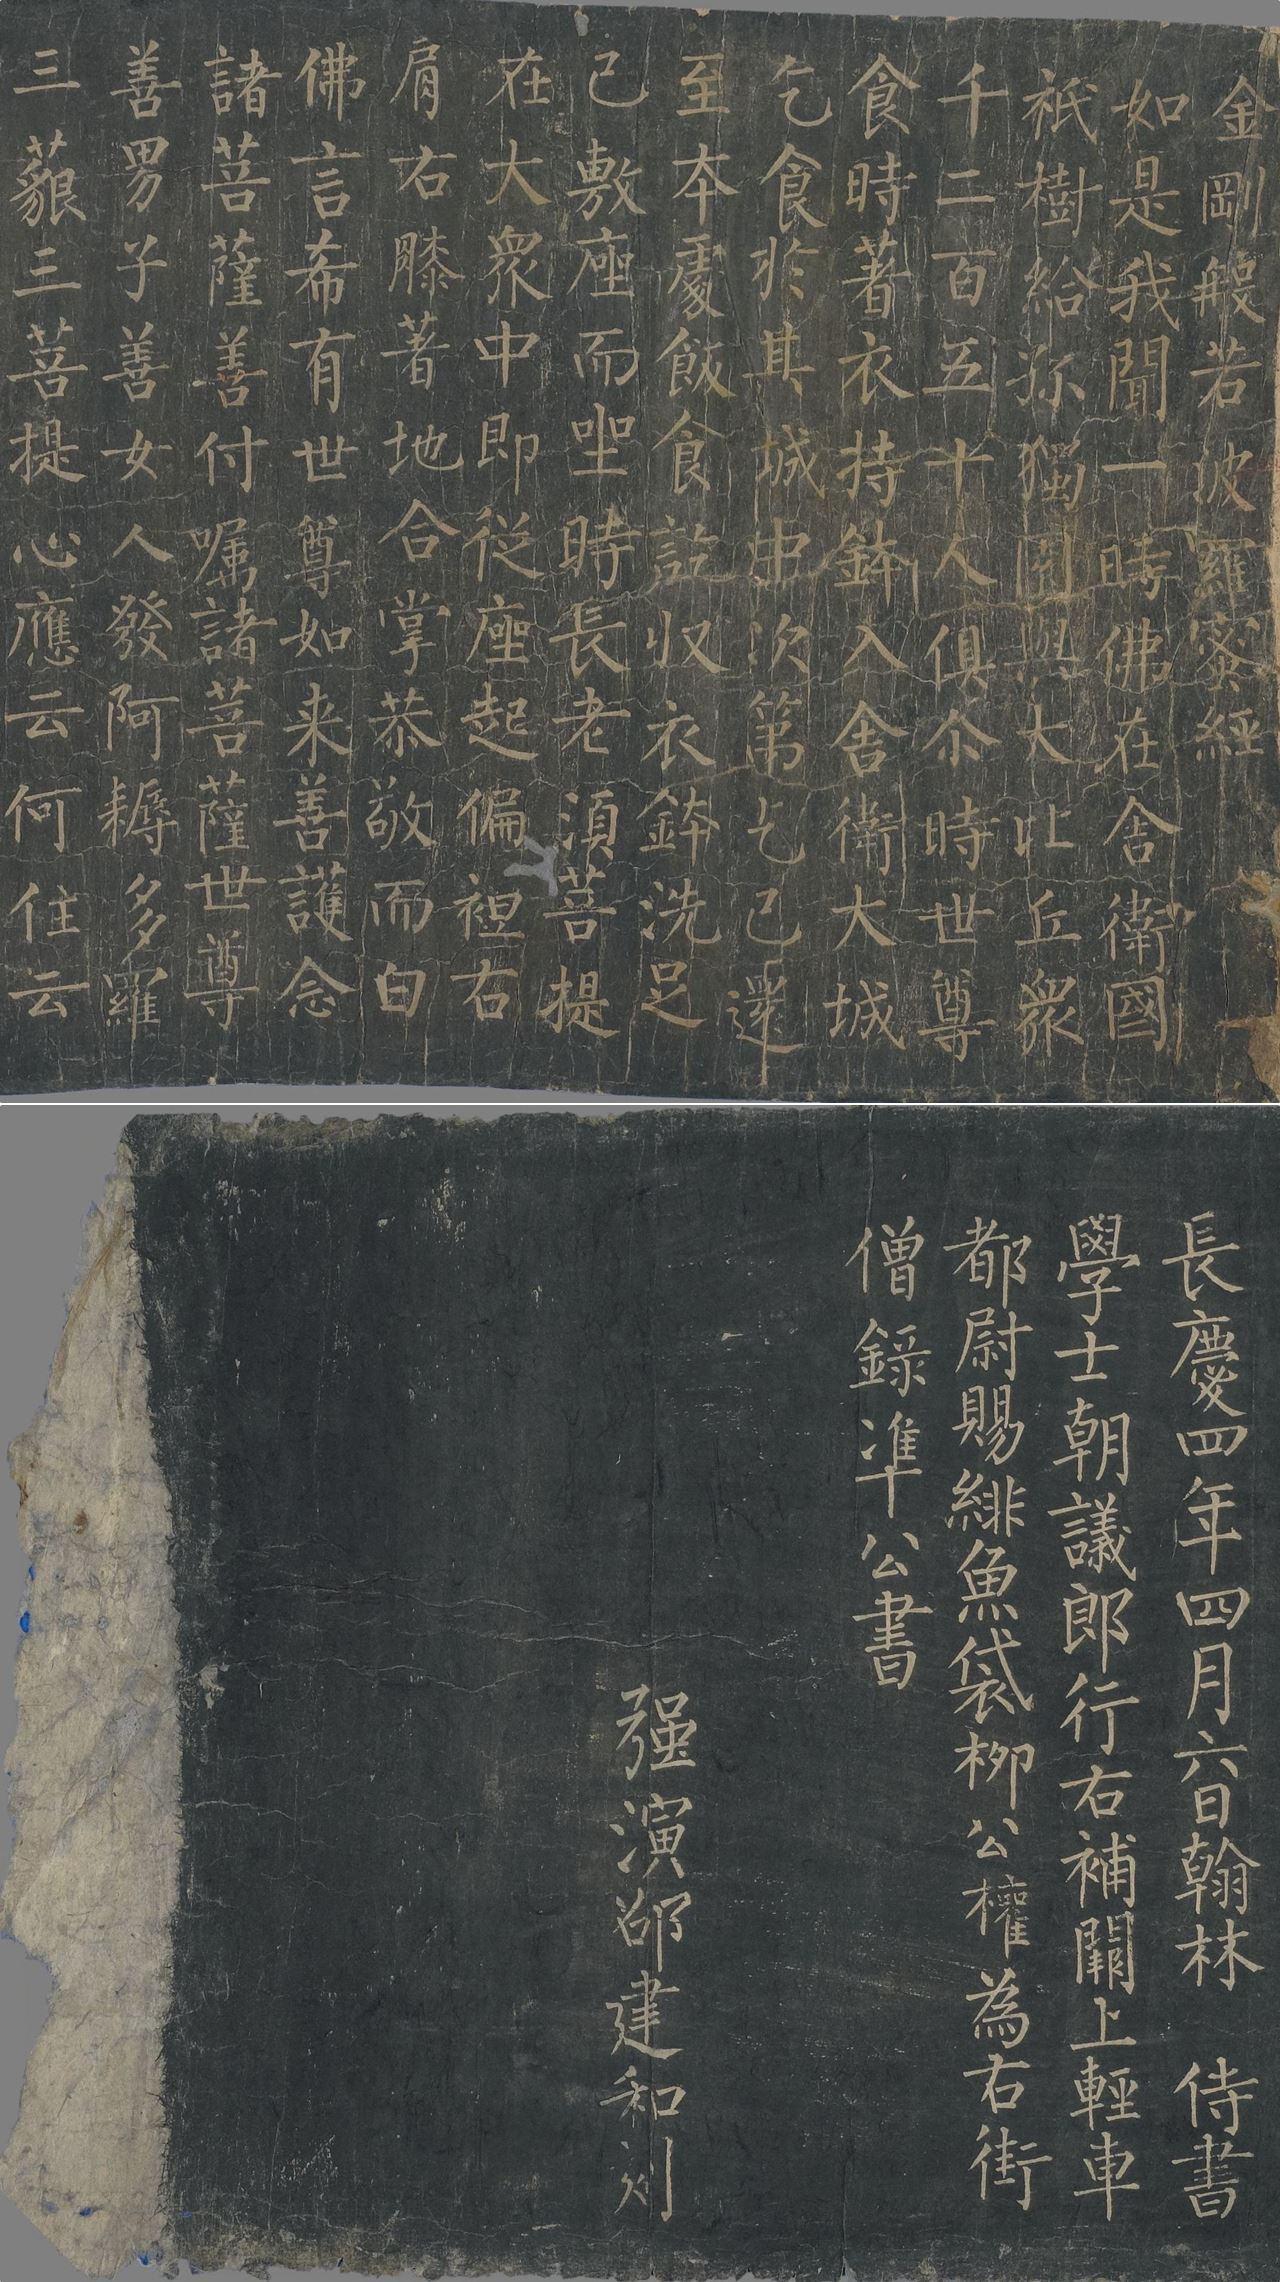 金剛般若波羅蜜經
如是我聞一時佛在舍衛國
祇樹給孤獨園與大比丘衆
千二百五十人俱尒時世尊
食時著衣持鉢入舍衛大城
乞食於其城中次第乞已還
至本處飯食訖収衣鉢洗足
已敷座而坐時長老湏菩提
在大衆中即從座起偏袒右
肩右膝著地合掌恭敬而白
佛言希有世尊如来善護念
諸菩薩善付嘱諸菩薩世尊
善男子善女人發阿耨多羅
三藐三菩提心應云何住云
長慶四年四月六日翰林 侍書
學士朝議郎行右補闕上輕車
都尉賜緋魚袋柳公權為右街
僧録准公書
强演邵建和刻